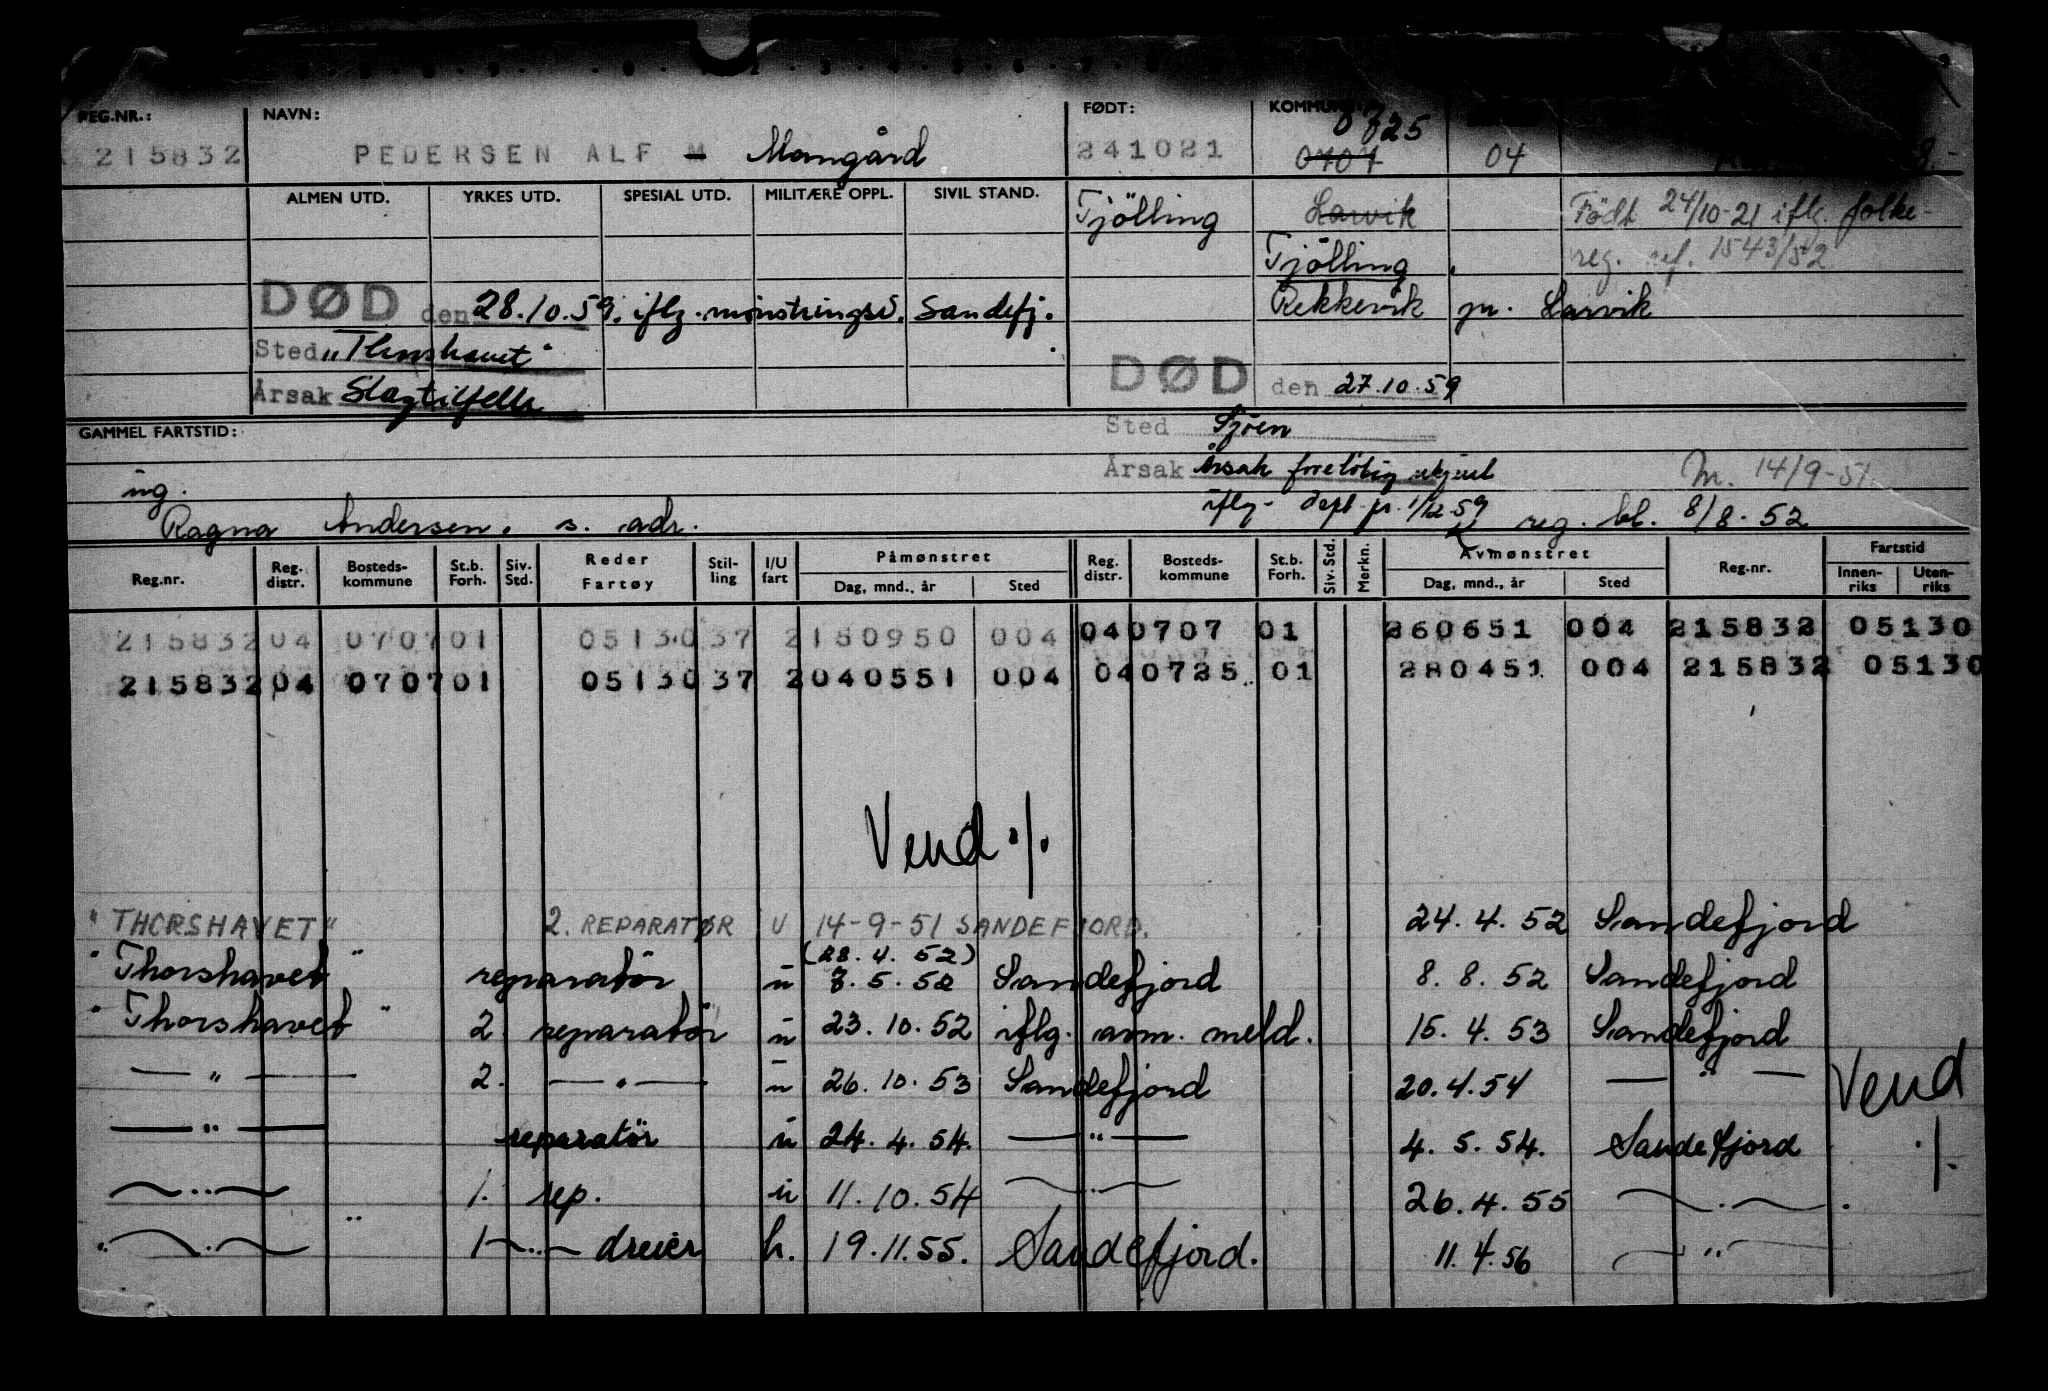 REG.NR.: NAVN: FØDT: KOMMUNE
0725
215832 PEDERSEN ALF M Momgård 241021 0707 04
ALMEN UTD. YRKES UTD. SPESIAL UTD. MILITÆRE OPPL. SIVIL STAND. Tjölling Larvik Født 24/10-21 iflg. folke-
Tjölling reg. ref. 1543/52
DØD den 28.10.59. iflg. mönstringsv. Sandefj. Rekkevik pr. Larvik
Sted "Thorshavet"
DØD den 27.10.59
Årsak Slagtilfelle
GAMMEL FARTSTID: Sted Sjøen
Årsak årsak foreløbig ukjent M. 14/9-51
ug. iflg. dept. pr. 1/12-59
Ragna Andersen. s. adr. reg. bl. 8/8-52
Reg.nr. Reg. distr. Bosteds-kommune St.b. Forh. Siv. Std. Reder Fartøy Stil-ling I/U fart Påmønstret Dag, mnd., år Sted Reg. distr. Bosteds-kommune St.b. Forh. Siv. Std. Merkn. Avmønstret Dag, mnd., år Sted Reg.nr. Fartstid Innen-riks Uten-riks
215832 04 0707 01 05130 37 2 180950 004 04 0707 01 260651 004 215832 05130
215832 04 0707 01 05130 37 2 040551 004 04 0725 01 280451 004 215832 05130
Vend ./.
"THORSHAVET" 2. REPARATØR U 14-9-51 SANDEFJORD. 24.4.52 Sandefjord
(28.4.52)
"Thorshavet" reparatör u 7.5.52 Sandefjord 8.8.52 Sandefjord
"Thorshavet" 2 reparatör u 23.10.52 iflg. avm. meld. 15.4.53 Sandefjord
— " — 2. — " — u 26.10.53 Sandefjord 20.4.54 — " — Vend ./.
— " — reparatör u 24.4.54. — " — 4.5.54. Sandefjord
— " — 1. rep. u 11.10.54 — " — 26.4.55 — " —
— " — 1 — " — dreier h. 19.11.55. Sandefjord. 11.4.56 — " —